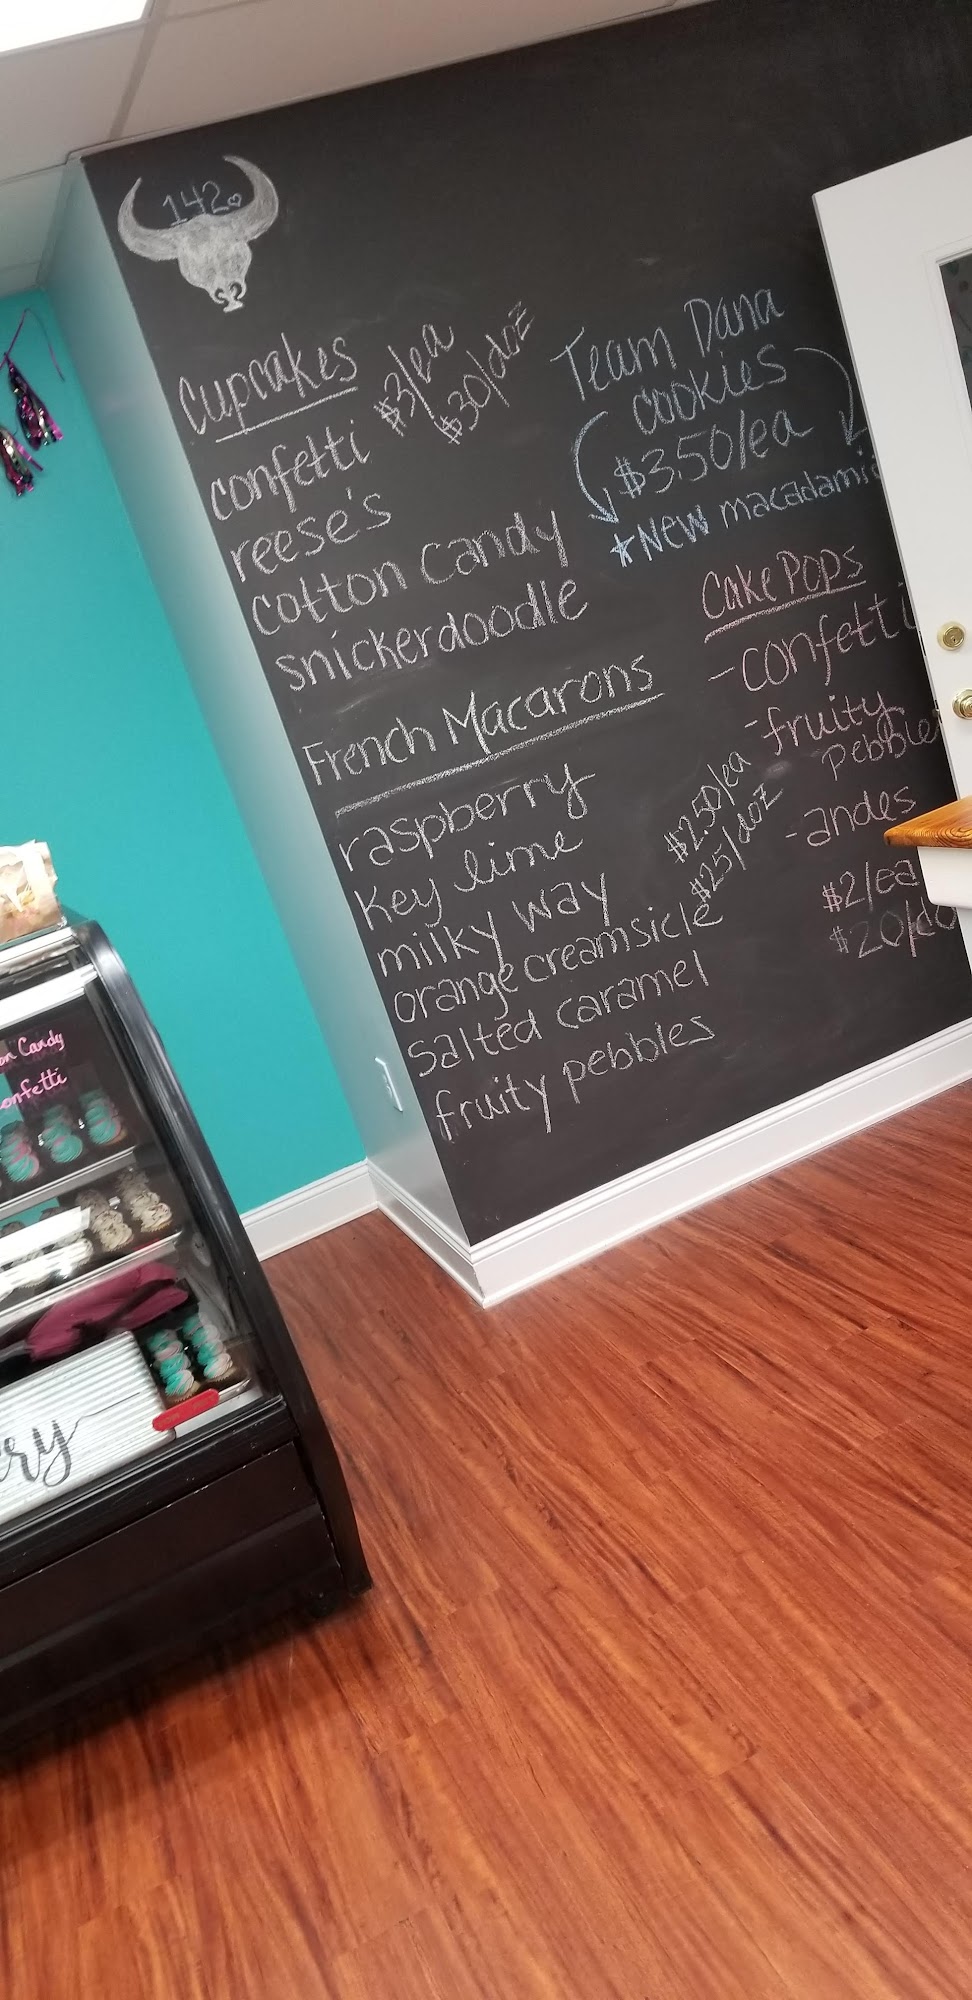 142
Cupcakes
$3/ea
$30/doz
confetti
reese's
cotton candy
snickerdoodle
French Macarons
raspberry
Key lime
milky way
orange creamsicle
salted caramel
fruity pebbles
$2.50/ea
$25/doz
Team Dana
cookies
$3.50/ea
*New macadamia
Cake Pops
-confetti
-fruity
pebble
-andes
$2/ea
$20/do
on Candy
onfetti
ery